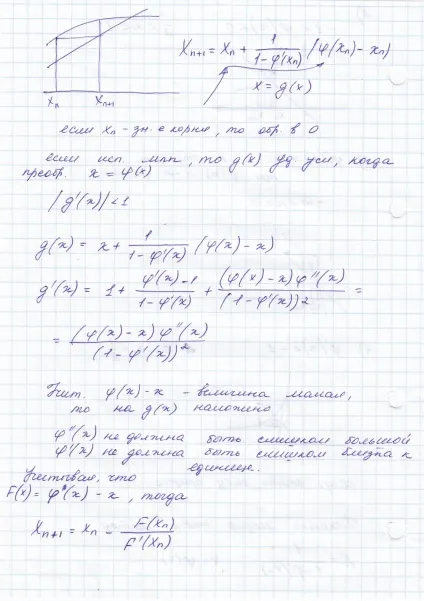 x_n x_{n+1}
X_{n+1} = X_n + 1/(1-φ'(x_n)) (φ(x_n) - x_n)
x = g(x)
если x_n - зн. е корня, то обр. в 0
если исп. мпи, то g(x) уд. усл, когда
преобр. x = φ(x)
|g'(x)| < 1
g(x) = x + 1/(1-φ'(x)) (φ(x) - x)
g'(x) = 1 + (φ'(x)-1)/(1-φ'(x)) + ((φ(x)-x)φ''(x))/(1-φ'(x))² =
= ((φ(x)-x)φ''(x))/(1-φ'(x))²
φ(x)-x - величина малая,
то на g(x) наложено
φ''(x) не должна быть слишком большой
φ'(x) не должна быть слишком близка к
единице.
Учитывая, что
F(x) = φ(x) - x, тогда
X_{n+1} = x_n - F(x_n)/F'(x_n)